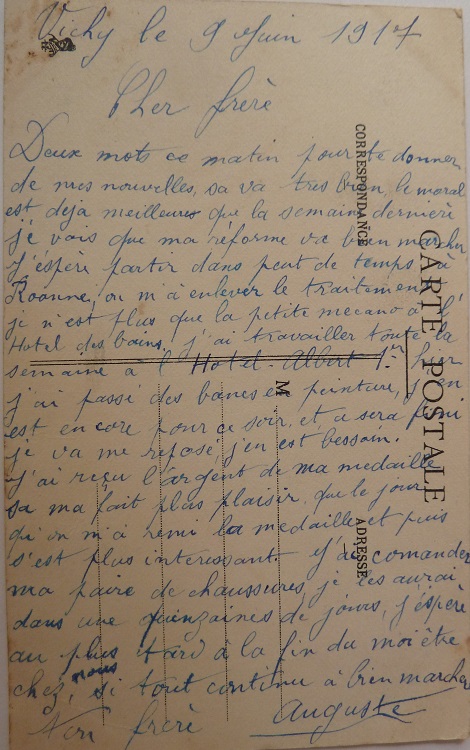 Vichy le 9 Juin 1917
Cher frère
Deux mots ce matin pour te donner
de mes nouvelles, sa va tres bien, le moral
est deja meilleures que la semaine dernière
je vois que ma réforme va bien marcher
j'éspère partir dans peut de temps à
Roanne, on m'à enlever le traitement
je n'est plus que la petite mecano à l'
Hotel des bains, j'ai travailler toute la
semaine à l'Hotel-Albert 1er hier
j'ai passé des bancs en peinture, j'en
est encore pour ce soir, et, a sera fini
je va me reposé, j'en est bessoin.
J'ai reçu l'argent de ma medaille
sa ma fait plus plaisir, que le jour
qu'on m'à remi la medaille et puis
s'est plus interessant. J'ai comander
ma paire de chaussures, je les aurai
dans une quinzaines de jours, j'éspère
au plus tard à la fin du moi être
chez nous, si tout continu à bien marcher
Ton frère Auguste
CARTE POSTALE
CORRESPONDANCE
ADRESSE
M